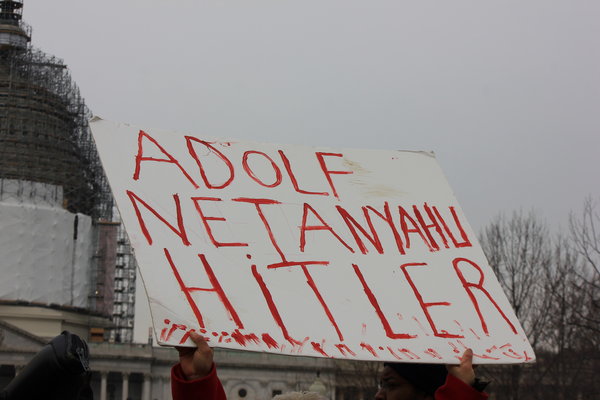 ADOLF
NETANYAHU
HITLER